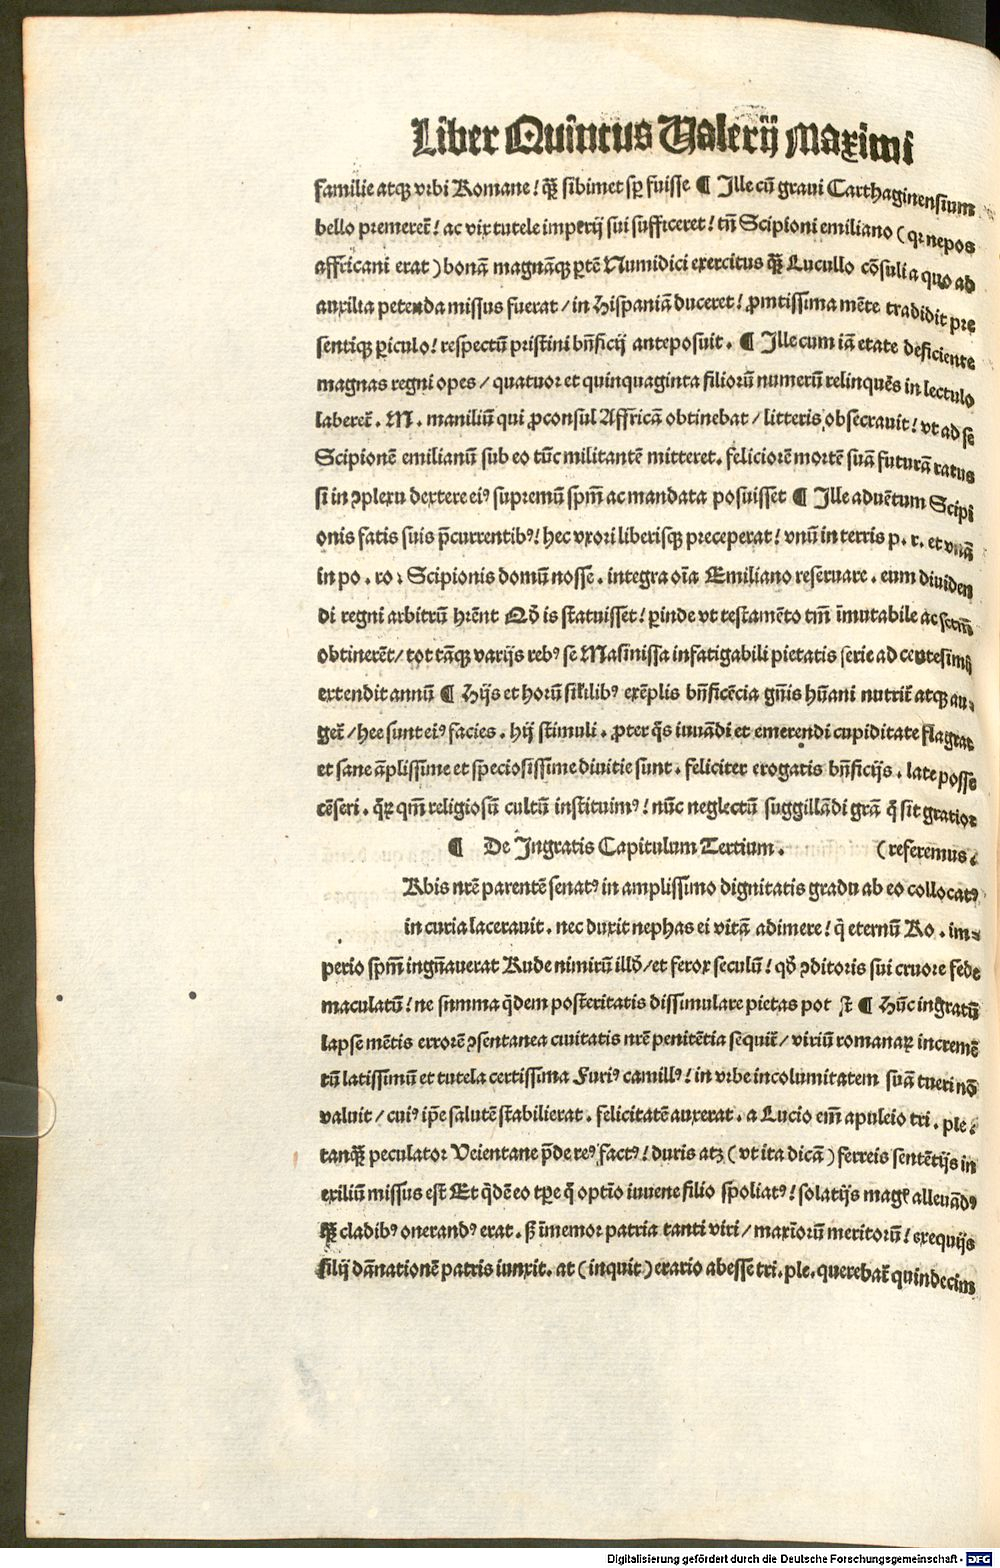 Liber Quintus Valerij Maximi
familie atqꝫ vrbi Romane! qꝫ̃ sibimet sꝑ fuisse ¶ Ille cũ graui Carthaginensium
bello premeret̃! ac vix tutele imperij sui sufficeret! tñ Scipioni emiliano (qꝛ nepos
affricani erat) bonã magnãqꝫ ꝑtẽ Numidici exercitus qꝫ̃ Lucullo cõsuli a quo ad
auxilia petenda missus fuerat / in Hispaniã duceret! ꝓmtissima mẽte tradidit pre
sentiqꝫ ꝑiculo! respectũ pristini bñficij anteposuit. ¶ Ille cum iã etate deficiente
magnas regni opes / quatuor et quinquaginta filiorũ numerũ relinquẽs in lectulo
laberet̃. M. maniliũ qui ꝓconsul Affricã obtinebat / litteris obsecrauit! vt ad se
Scipionẽ emilianũ sub eo tũc militantẽ mitteret. feliciorẽ mortẽ suã futurã ratus
si in ꝯplexu dextere eiꝰ supremũ spm̃ ac mandata posuisset ¶ Ille aduẽtum Scipi
onis fatis suis p̃currentibꝰ! hec vxori liberisqꝫ preceperat! vnũ in terris p. r. et vnã
in po. ro: Scipionis domũ nosse. integra oĩa Emiliano reseruare. eum diuiden
di regni arbitrũ hrẽnt Qd̃ is statuisset! ꝑinde vt testamẽto tm̃ ĩmutabile ac sctm̃
obtinerẽt / tot tãqꝫ varijs rebꝰ se Masinissa infatigabili pietatis serie ad centesimũ
extendit annũ ¶ Hijs et horũ sil̃ibꝰ exẽplis bñficẽcia gñis hũani nutrit̃ atqꝫ au-
get̃ / hee sunt eiꝰ facies. hij stimuli. ꝓpter q̃s iuuãdi et emerendi cupiditate flagrat
et sane ãplissime et speciosissime diuitie sunt. feliciter erogatis bñficijs. late posse
cẽseri. q̃ꝝ qm̃ religiosũ cultũ instituimꝰ! nũc neglectũ suggillãdi grã q̃ sit gratior
¶ De Ingratis Capitulum Tertium. (referemus.
Rbis nrẽ parentẽ senatꝰ in amplissimo dignitatis gradu ab eo collocatꝰ
in curia lacerauit. nec duxit nephas ei vitã adimere! q̃ eternũ Ro. im-
perio spm̃ ingñauerat Rude nimirũ illd̃ / et ferox seculũ! qd̃ ꝯditoris sui cruore fede
maculatũ! ne summa q̃dem posteritatis dissimulare pietas pot st̃ ¶ Hũc ingratũ
lapse mẽtis errorẽ ꝯsentanea ciuitatis nrẽ penitẽtia sequit̃ / viriũ romanaꝝ incremẽ
tũ latissimũ et tutela certissima Furiꝰ camillꝰ! in vrbe incolumitatem suã tueri nõ
valuit / cuiꝰ ip̃e salutẽ stabilierat. felicitatẽ auxerat. a Lucio em̃ apuleio tri. ple.
tanqꝫ̃ peculator Veientane p̃de reꝰ factꝰ! duris atꝫ (vt ita dicã) ferreis sentẽtijs in
exiliũ missus est Et q̃dẽ eo tꝑe q̃ optĩo iuuene filio spoliatꝰ! solatijs magꝭ alleuãdꝰ
qꝫ̃ cladibꝰ onerandꝰ erat. sꝫ ĩmemor patria tanti viri / maxĩorũ meritorũ! exequijs
filij dãnationẽ patris iunxit. at (inquit) erario abesse tri. ple. querebat̃ quindecim
Digitalisierung gefördert durch die Deutsche Forschungsgemeinschaft - DFG